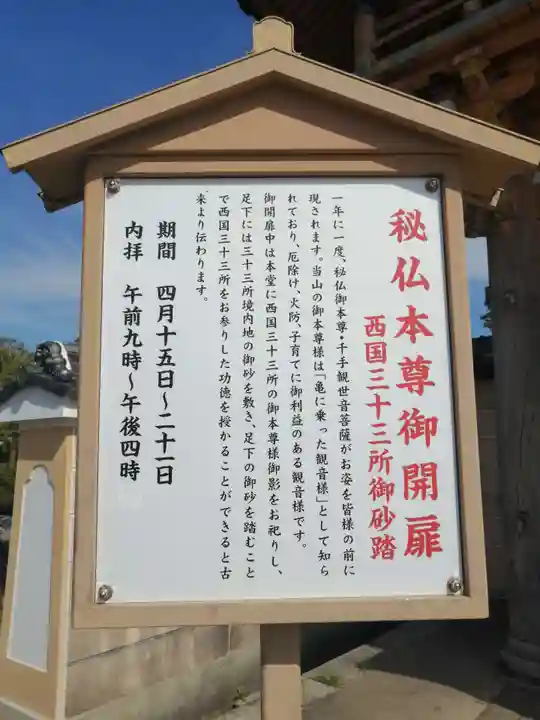 秘仏本尊御開扉
西国三十三所御砂踏
一年に一度、秘仏御本尊・千手観世音菩薩がお姿を皆様の前に
現されます。当山の御本尊様は「亀に乗った観音様」として知ら
れており、厄除け、火防、子育てに御利益のある観音様です。
御開扉中は本堂に西国三十三所の御本尊様御影をお祀りし、
足下には三十三所境内地の御砂を敷き、足下の御砂を踏むこと
で西国三十三所をお参りした功徳を授かることができると古
来より伝わります。
期間 四月十五日〜二十一日
内拝 午前九時〜午後四時